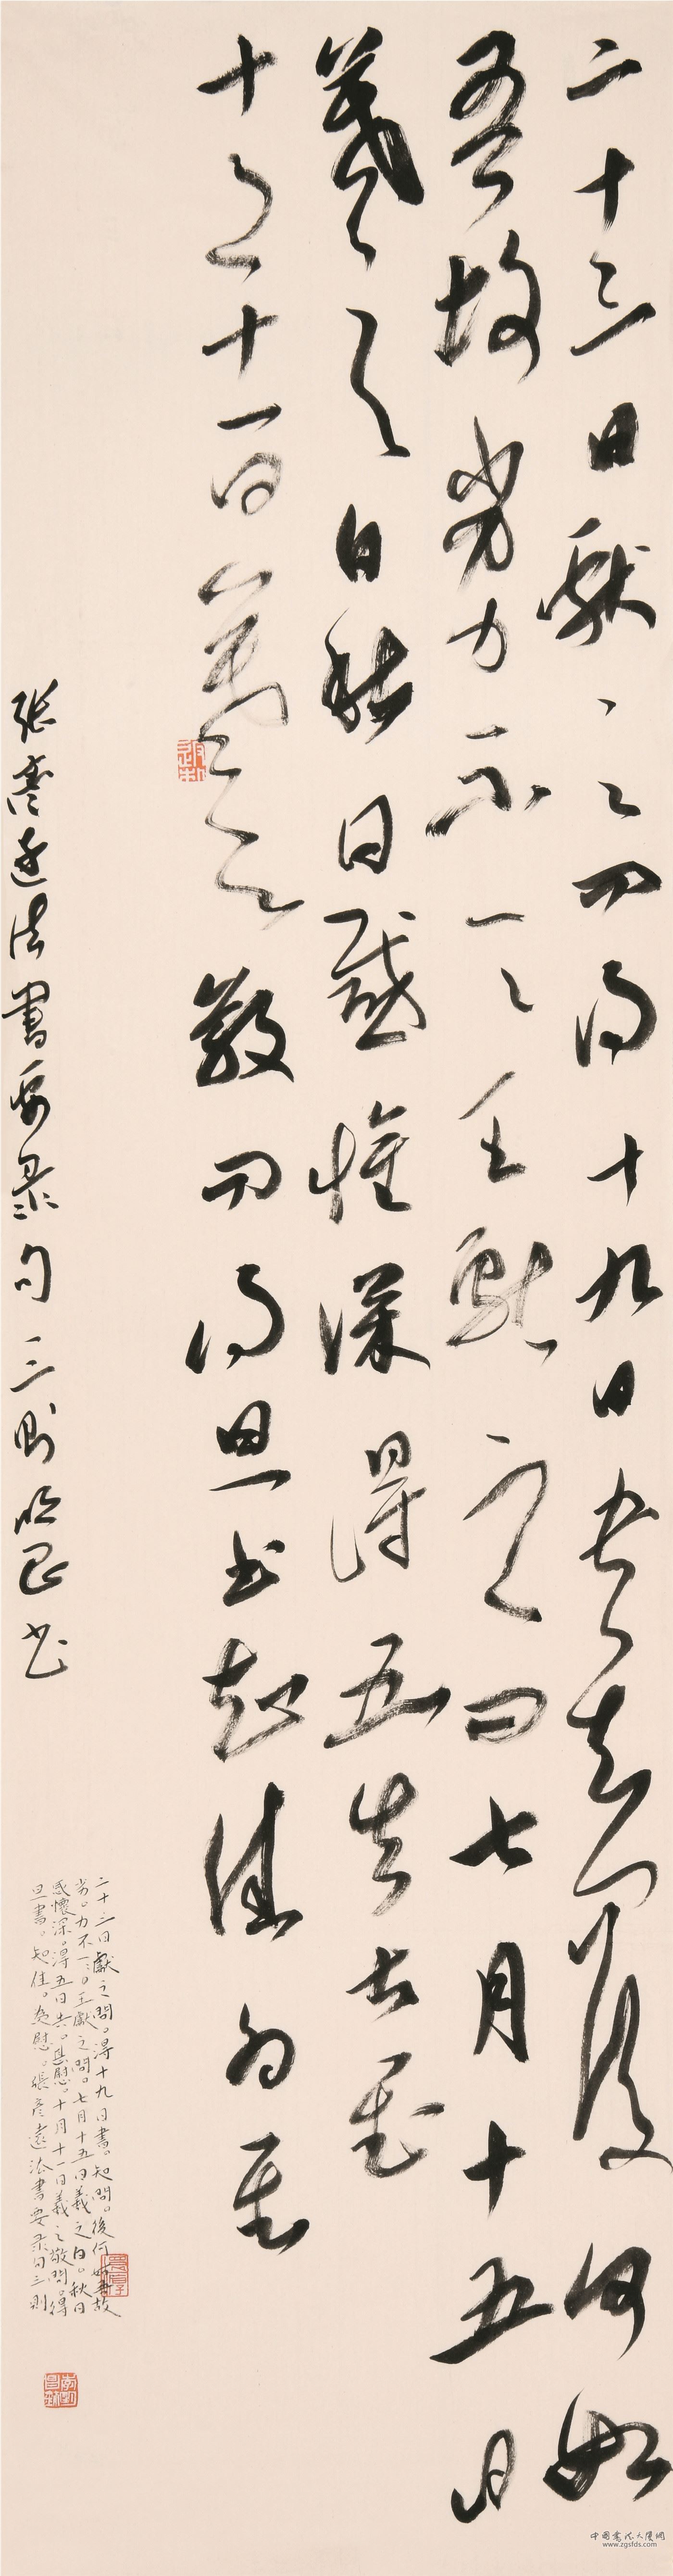 二十三日獻之問得十九日書知問後何如
吾故劣力不一一王獻之問七月十五日
羲之白秋日感懷深得五日告甚慰
十月十一日羲之敬問得旦書知佳為慰
張彥遠法書要录句三則 书
二十三日獻之問。得十九日書。知問。後何如吾故
劣。力不一一。王獻之問。七月十五日羲之白。秋日
感懷深。得五日告。甚慰。十月十一日羲之敬問。得
旦書。知佳。為慰。張彥遠法書要录句三則
中國書法大展網
www.zgsfds.com